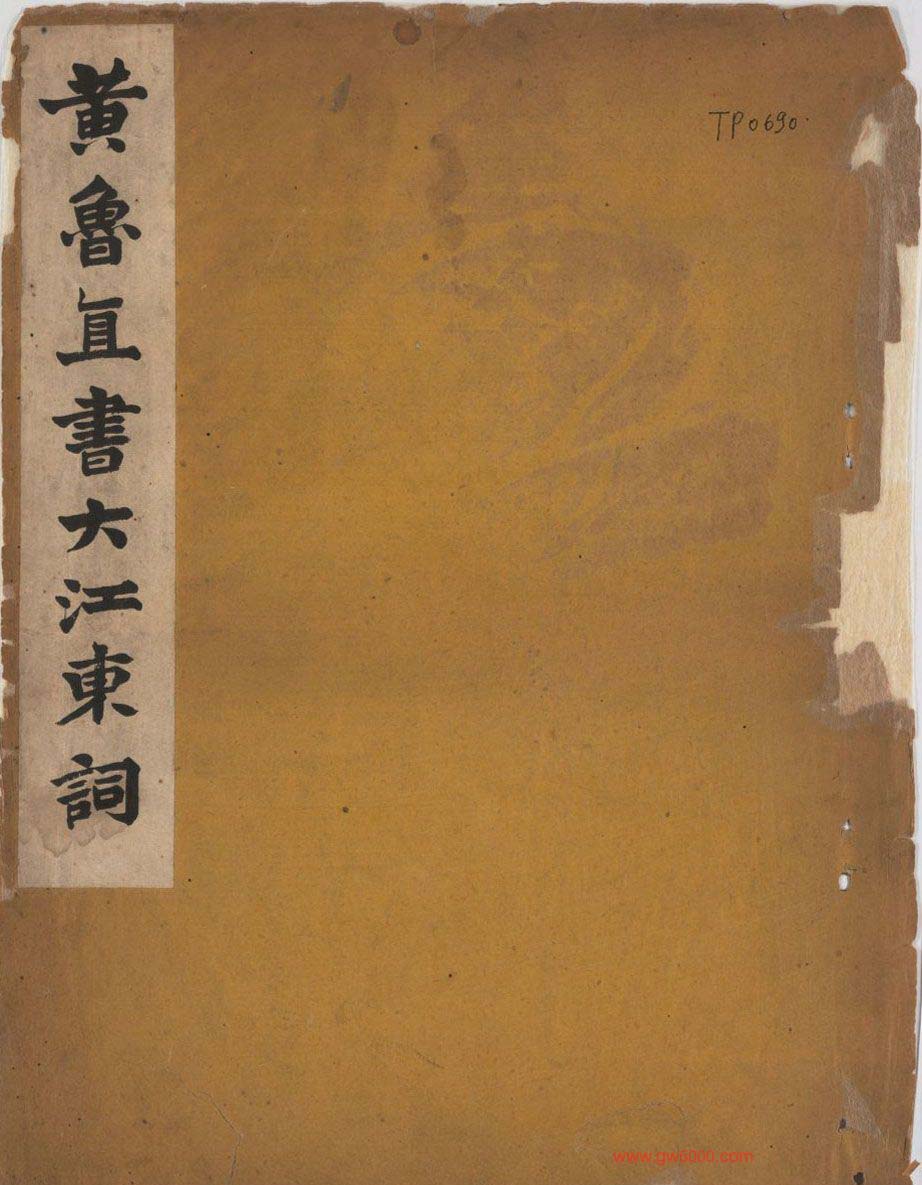 黃魯直書大江東詞
TP0690
www.gw6000.com